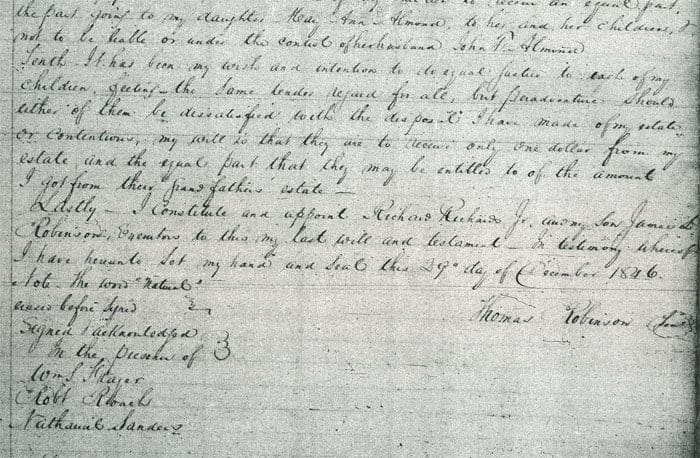 to receive an equal part,
the part going to my daughter Mary Ann Almond, to her and her children, &
not to be liable or under the control of her husband John F. Almond
Tenth It has been my wish and intention to do equal justice to each of my
children, feeling the same tender regard for all, but peradventure should
either of them be dissatisfied with the disposit I have made of my estate
or contentious, my will is that they are to receive only one dollar from my
estate and the equal part that they may be entitled to of the amount
I got from their grandfathers' estate —
Lastly — I constitute and appoint Richard Richards Jr. and my Son James
Robinson, Executors to this my last will and testament — In testimony whereof
I have hereunto set my hand and seal this 29th day of December 1846.
Note. The word "natural"
erased before signed
Thomas Robinson
Signed & acknowledged
In the presence of
Wm S
Robt
Nathaniel Sanders